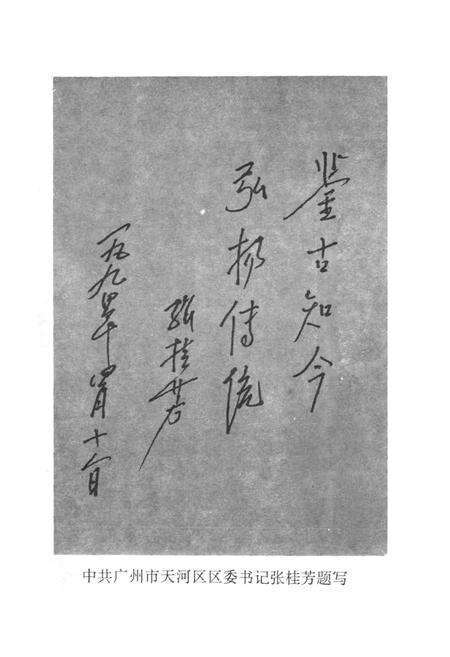 鉴古知今
弘扬传统
張桂芳
一九九四年四月十六日
中共广州市天河区区委书记张桂芳题写